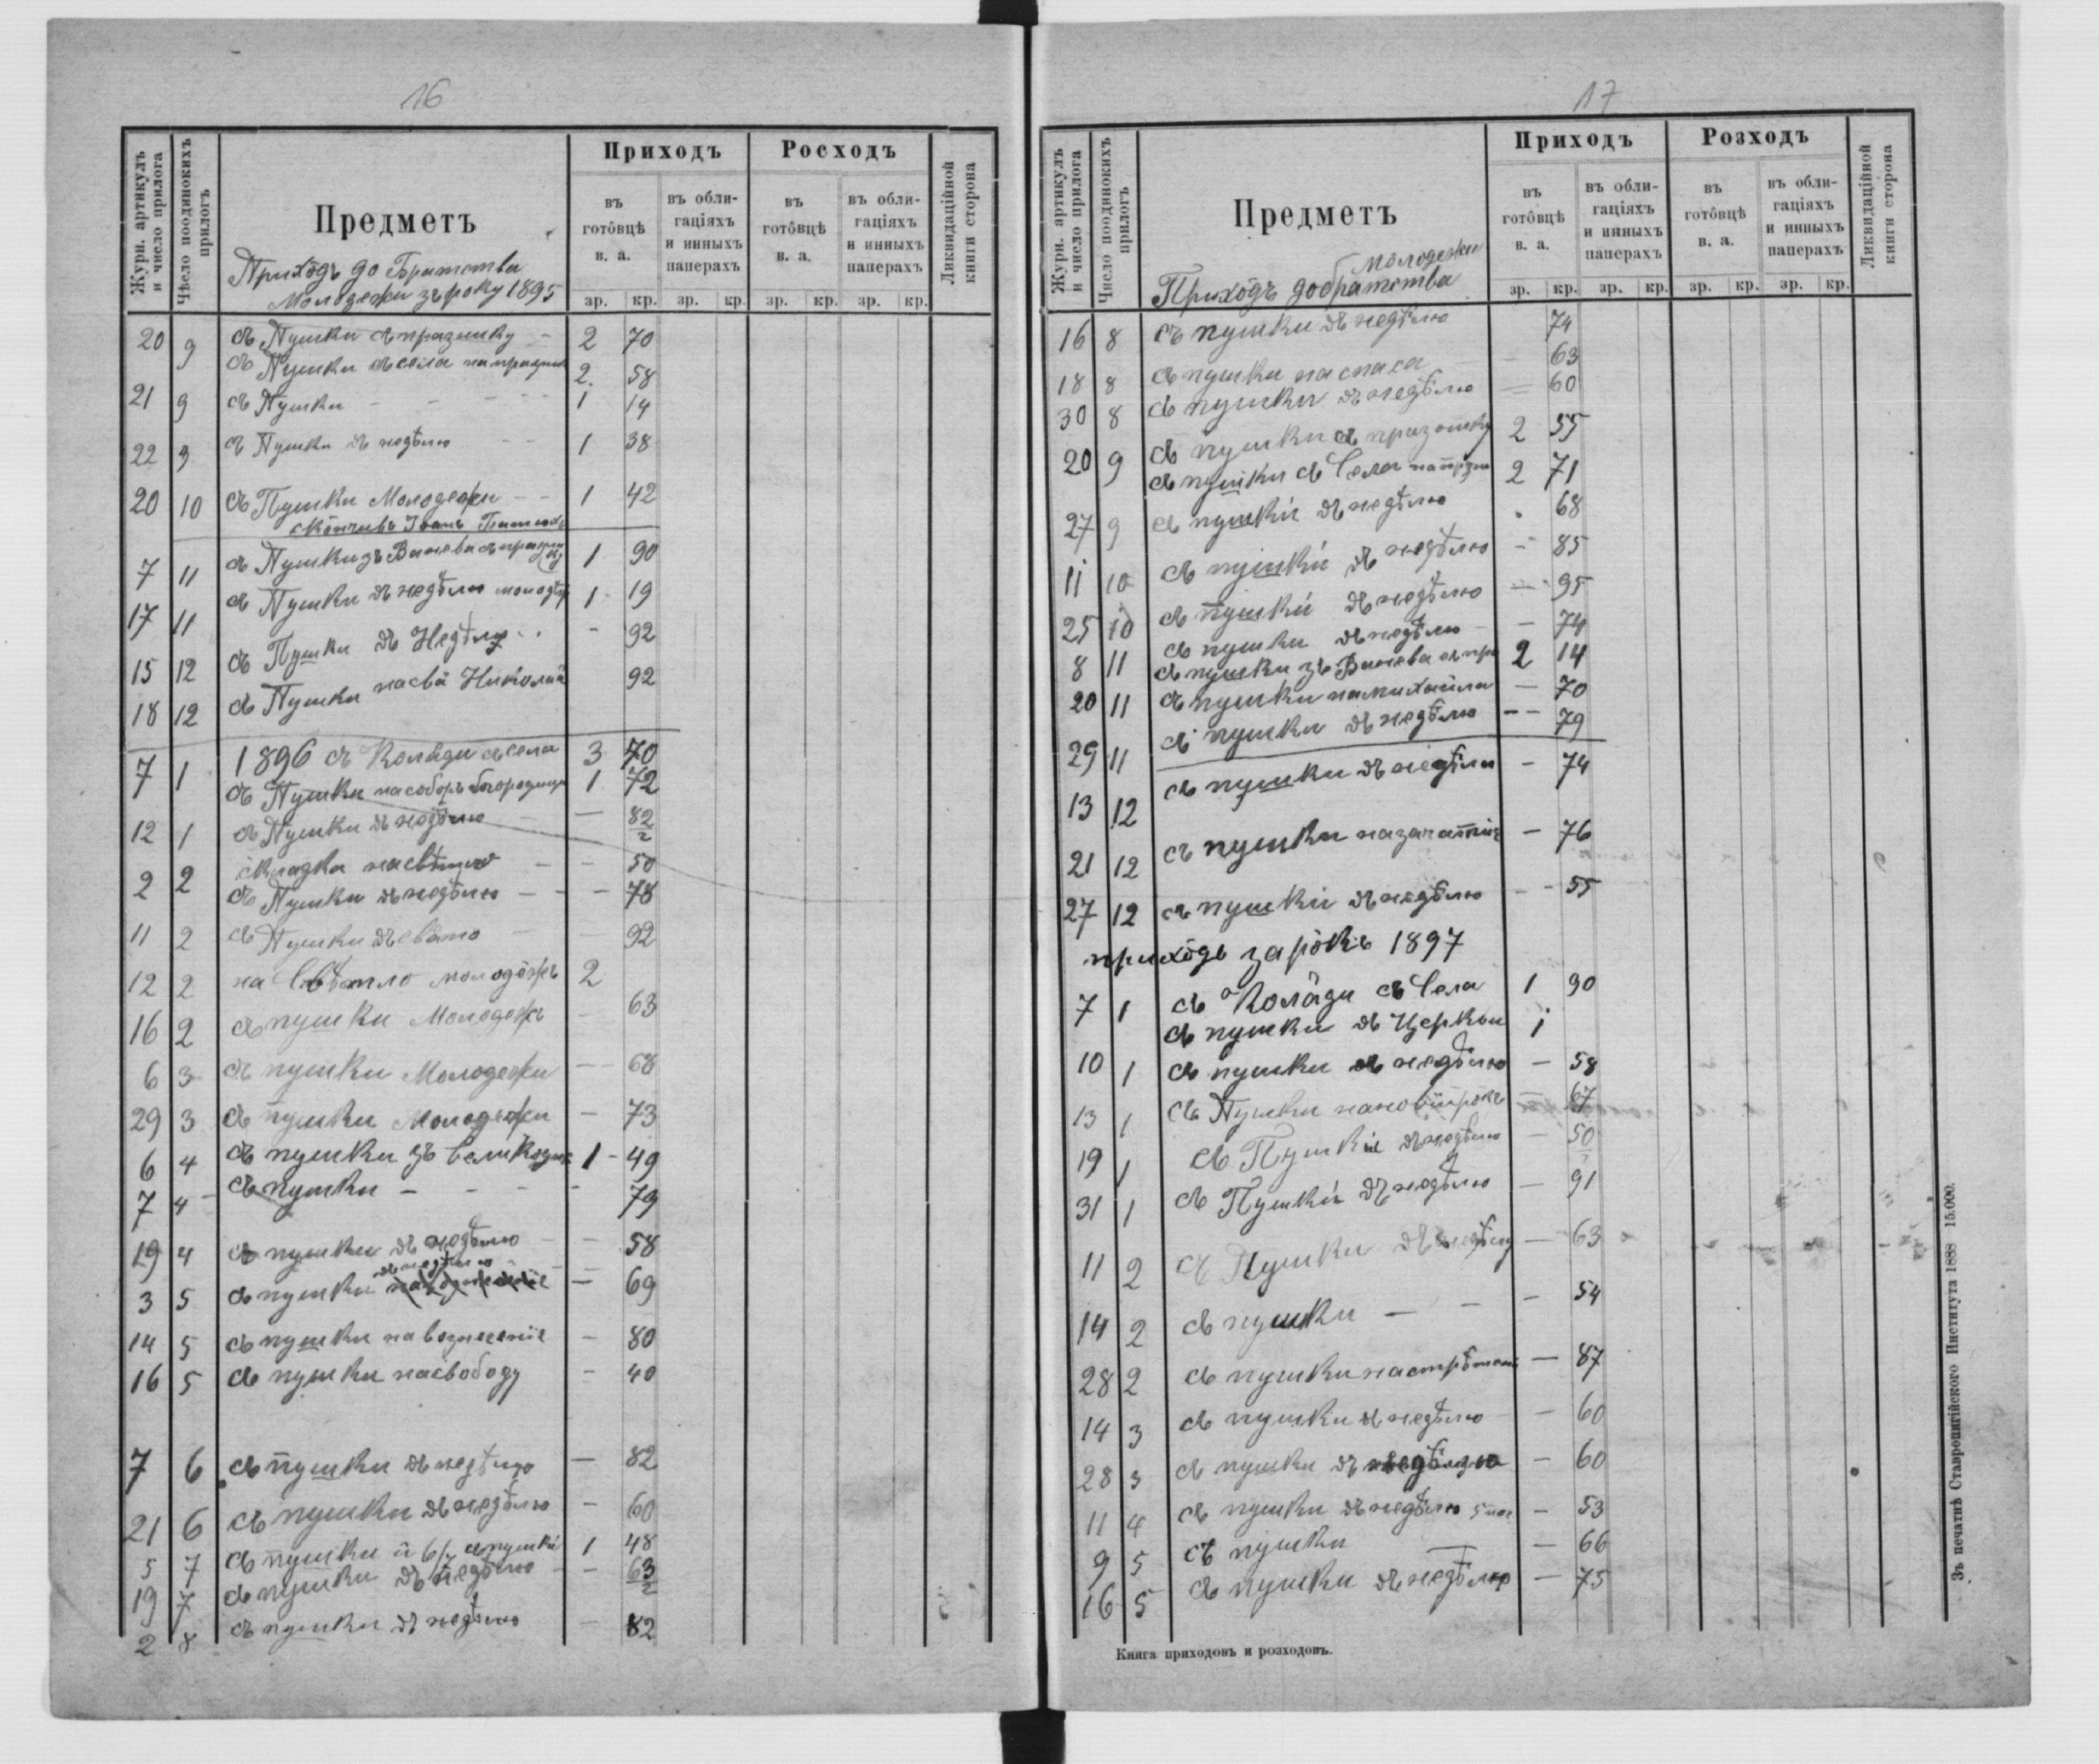 16
Журн. артикулъ и число прилога
Чѣсло поодинокихъ прилогъ
Предметъ
Приходъ
Росходъ
Ликвидаційной книги сторона
въ готôвцѣ в. а.
въ облигаціяхъ и инныхъ паперахъ
въ готôвцѣ в. а.
въ облигаціяхъ и инныхъ паперахъ
зр. кр. зр. кр. зр. кр. зр. кр.
Прихôдъ до Братства
Молодежи зъ року 1895
20 9 съ Пушки съ празнику — 2 70
съ Пушки съ села на празник 2. 58
21 9 съ Пушки - - - - - 1 14
22 9 съ Пушки въ недѣлю - - 1 38
20 10 съ Пушки Молодежи - - 1 42
скôнчивъ Iванъ
7 11 съ Пушки зъ Ванева съ празнику 1 90
17 11 съ Пушки въ недѣлю 1 19
15 12 съ Пушки въ Недѣлу - 92
18 12 съ Пушки на свâ Николая 92
7 1 1896 съ Коляди съ села 3 70
съ Пушки на соборъ богородици 1 72
12 1 съ Пушки въ недѣлю — 82/2
2 2 складка на свѣтло - - 50
съ Пушки въ недѣлю — - - 78
11 2 съ Пушки въ свято — 92
12 2 на Свѣтло молодѣжъ 2
16 2 съ пушки Молодежъ - 63
6 3 съ пушки Молодежи — 68
29 3 съ пушки Молодежи - 73
6 4 съ пушки зъ великодня 1 - 49
7 4 съ пушки - - - - 79
19 4 съ пушки въ недѣлю — 58
въ недѣлю
3 5 съ пушки — 69
14 5 съ пушки на вознесеніе - 80
16 5 съ пушки на свободу - 40
7 6 съ пушки въ недѣлю — 82
21 6 съ пушки въ недѣлю - 60
5 7 съ пушки и 6/7 съ пушки 1 48
19 7 съ пушки въ недѣлю - - 63/2
2 8 съ пушки въ недѣлю - 82
17
Журн. артикулъ и число прилога
Число поодинокихъ прилогъ
Предметъ
Приходъ
Розходъ
Ликвидаційной книги сторона
въ готôвцѣ в. а.
въ облигаціяхъ и инныхъ паперахъ
въ готôвцѣ в. а.
въ облигаціяхъ и инныхъ паперахъ
зр. кр. зр. кр. зр. кр. зр. кр.
Молодежи
Прихôдъ до братства
16 8 съ пушки въ недѣлю 74
18 8 съ пушки на спаса — 63
30 8 съ пушки въ недѣлю — 60
20 9 съ пушки съ празнику 2 55
съ пушки съ Села на празн 2 71
27 9 съ пушки въ недѣлю . 68
11 10 съ пушки въ недѣлю - 85
25 10 съ пушки въ недѣлю — 95
8 11 съ пушки въ недѣлю - - 74
съ пушки зъ Ванева съ пра 2 14
20 11 съ пушки на михаила — 70
29 11 съ пушки въ недѣлю - - 79
13 12 съ пушки въ недѣли - 74
21 12 съ пушки на зачатіе - 76
27 12 съ пушки въ недѣлю - - 55
прихôдъ за рôкъ 1897
7 1 съ Коляди съ Села 1 90
съ пушки въ Церкви 1
10 1 съ пушки въ недѣлю — 58
13 1 съ Пушки на новий рокъ — 67
19 1 съ Пушки въ недѣлю — 50
31 1 съ Пушки въ недѣлю — 91
11 2 съ Пушки въ недѣлу — 63
14 2 съ пушки — - - 54
28 2 съ пушки на стрѣтеніе — 87
14 3 съ пушки въ недѣлю - 60
28 3 съ пушки въ недѣлю - 60
11 4 съ пушки въ недѣлю 5 - 53
9 5 съ пушки — — 66
16 5 съ пушки въ недѣлю — 75
Книга приходовъ и розходовъ.
Зъ печатнѣ Ставропигійского Института 1888 15.000.